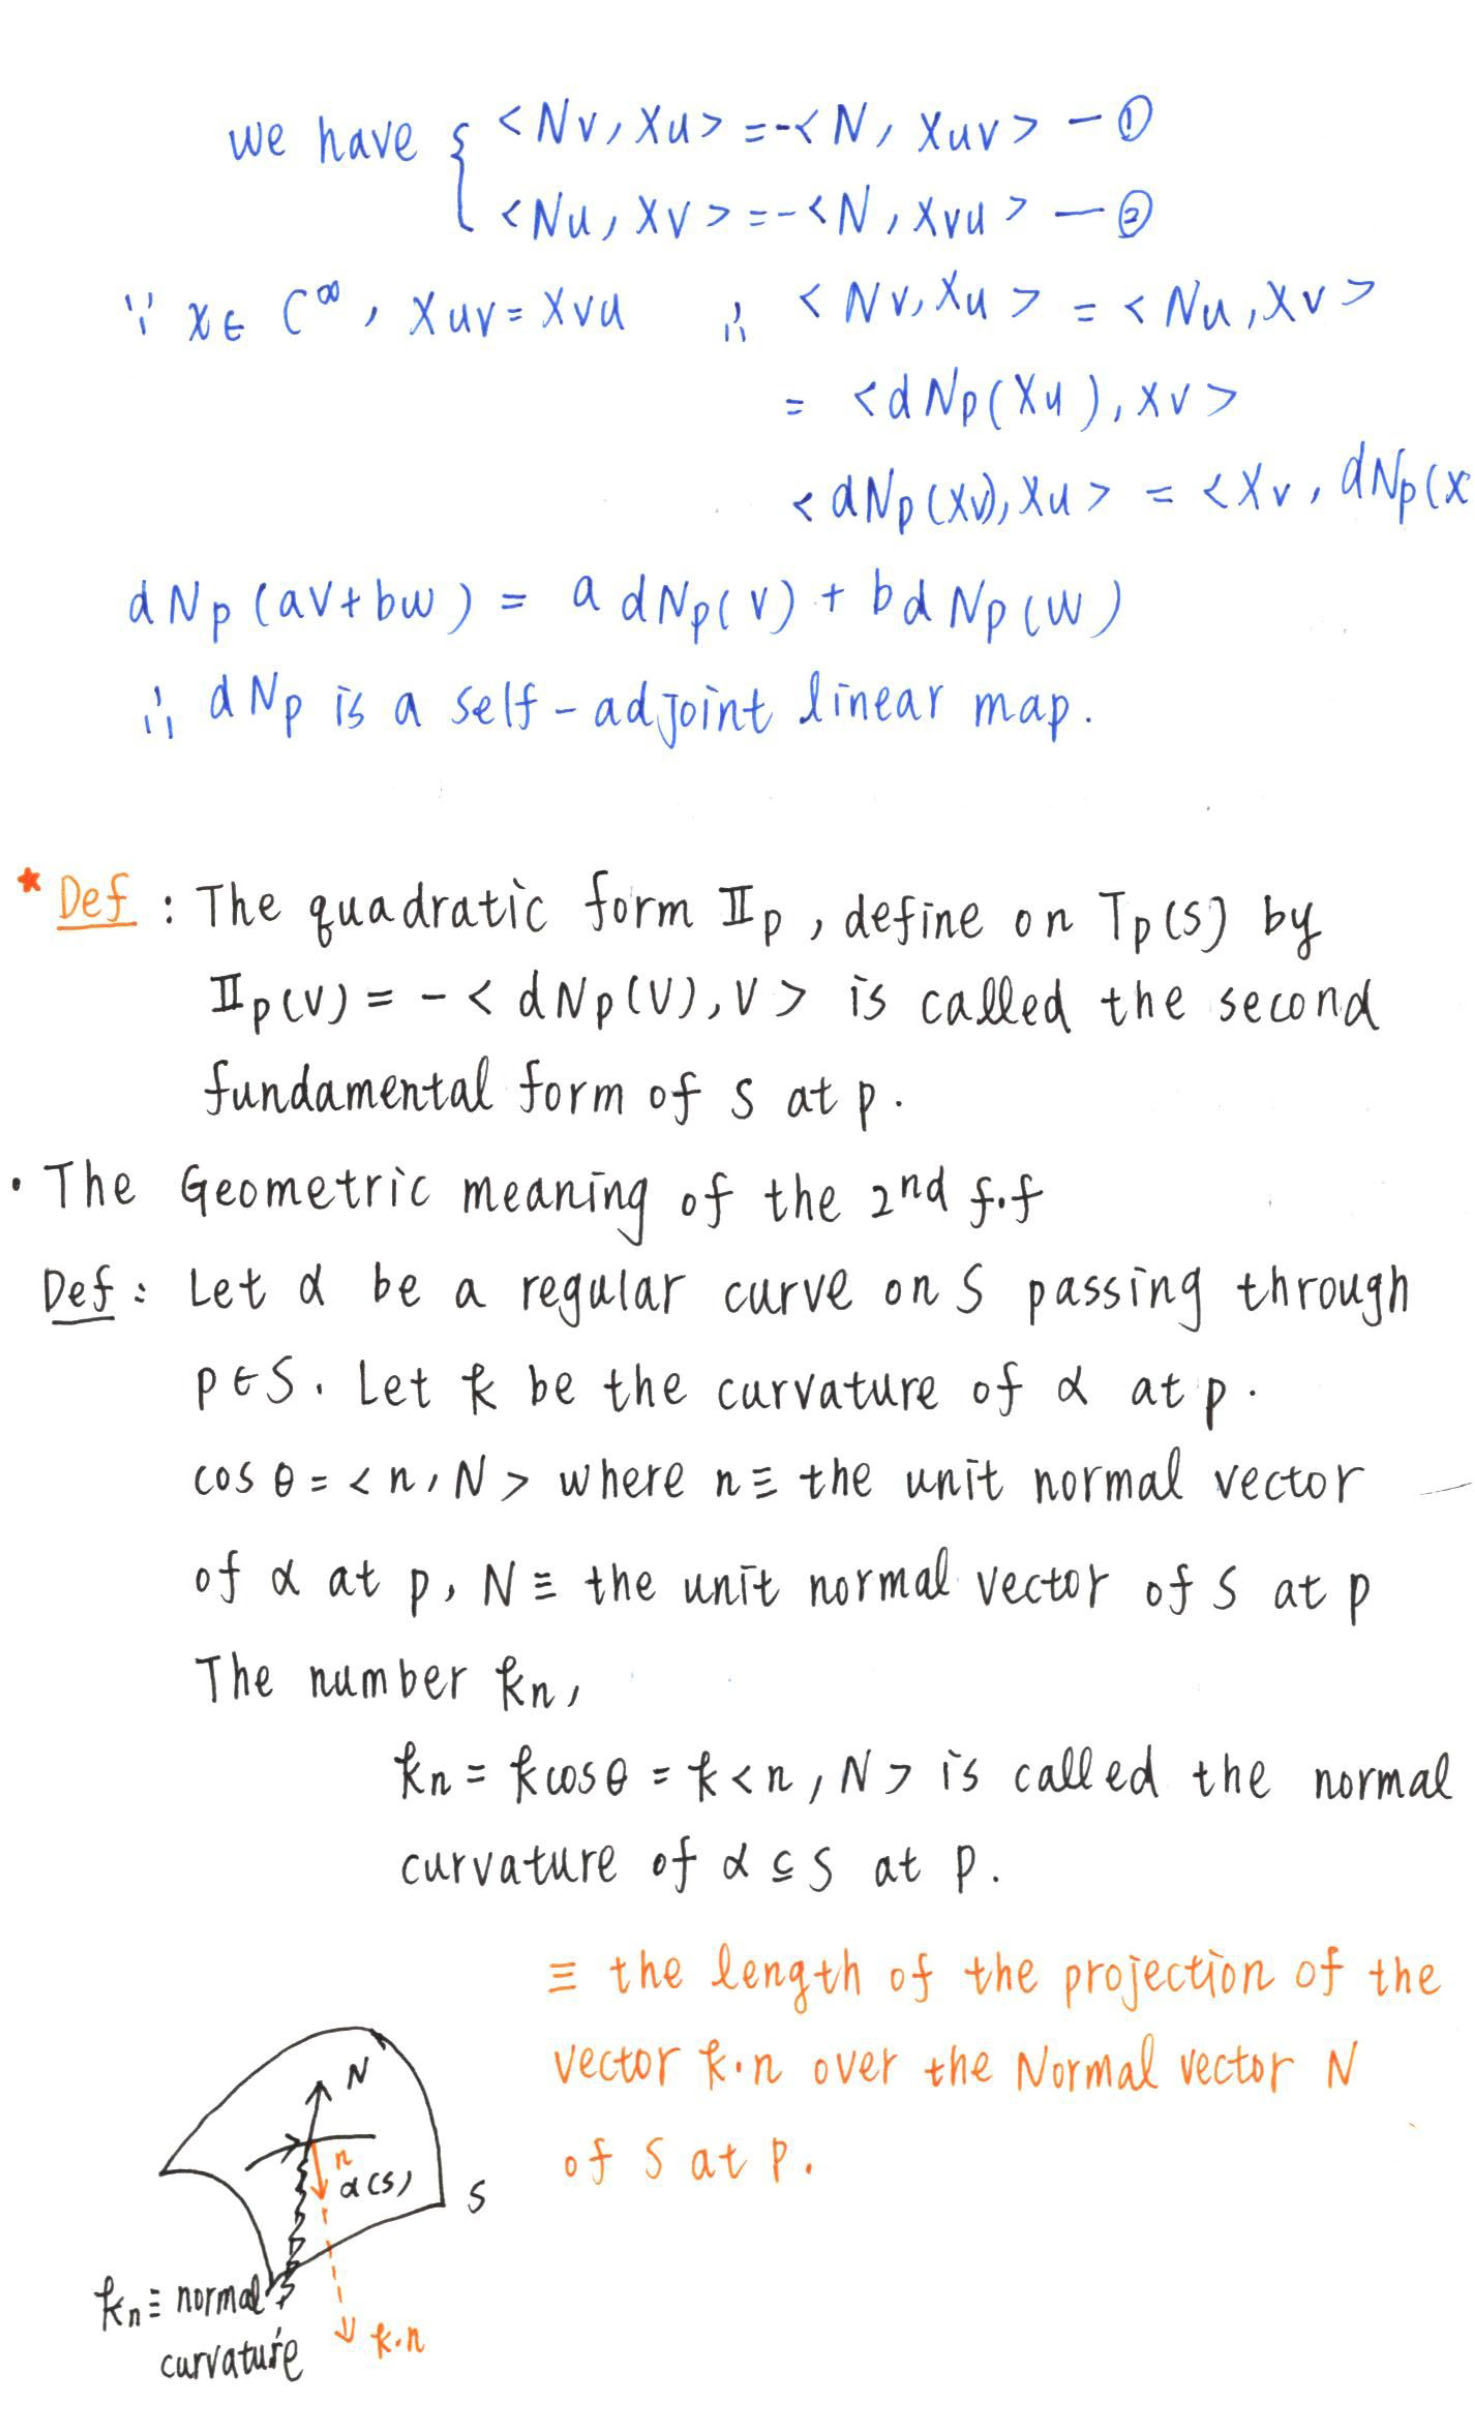 we have { <Nv, Xu> = -<N, Xuv> — ①
<Nu, Xv> = -<N, Xvu> — ②
∵ x∈ C^∞, Xuv = Xvu ∴ <Nv, Xu> = <Nu, Xv>
= <dNp(Xu), Xv>
<dNp(Xv), Xu> = <Xv, dNp(X
dNp(av+bw) = a dNp(v) + b dNp(w)
∴ dNp is a self-adjoint linear map.
* Def : The quadratic form IIp, define on Tp(S) by
IIp(v) = - < dNp(v), v > is called the second
fundamental form of S at p.
• The Geometric meaning of the 2nd f.f
Def : Let α be a regular curve on S passing through
p∈S. Let k be the curvature of α at p.
cos θ = <n, N> where n ≡ the unit normal vector
of α at p, N ≡ the unit normal vector of S at p
The number kn,
kn = k cos θ = k<n, N> is called the normal
curvature of α ⊆ S at p.
≡ the length of the projection of the
vector k·n over the Normal vector N
of S at p.
N
n
α(s)
S
kn ≡ normal
curvature
k·n